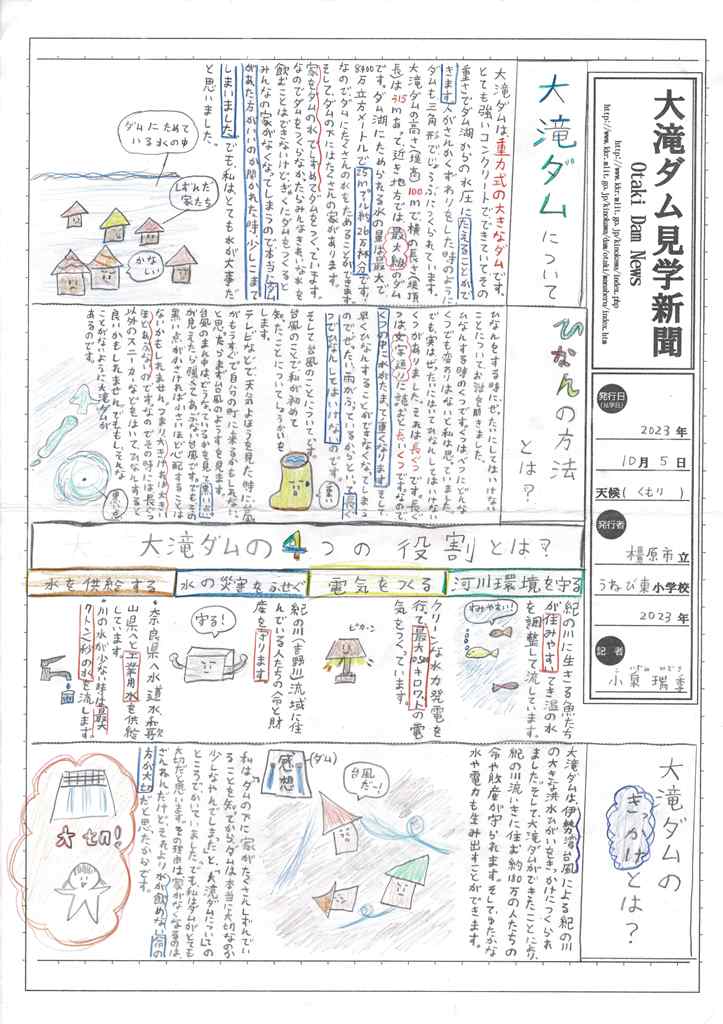 大滝ダム見学新聞
Otaki Dam News
http://www.kkr.mlit.go.jp/kinokawa/index.php
発行日
(見学日)
2023年
10月5日
天候(くもり)
発行者
橿原市立
うねび東小学校
2023年
記者
大滝ダムについて
大滝ダムは、重力式の大きなダムです。
とても強いコンクリートでできていてその
重さでダム湖からの水圧にたえることがで
きます。人がさんかくずわりをした時のように
ダムも三角形でじょうぶにつくられています。
大滝ダムの高さ(堤高)100mで横の長さ(堤頂
長)は315mあって近き地方では、最大級のダム
です。ダム湖にためられる水の量は最大で
8400万立方メートルで25mプール約26万杯分です。
なのでダムにたくさんの水をためることができます。
そして、ダムの下にはたくさんの家があります。
家をダムの水でしずめてダムをつくっています。
なのでダムをつくらなかったらみんなきれいな水を
飲むことはできないけど、ぎゃくにダムをつくると
みんなの家がなくなってしまうので本当にダム
があった方がいいのか聞かれた時少しこまって
しまいました。でも、私はとても水が大事だ
と思いました。
ダムにためて
いる水の中
しずんだ
家たち
かなしい
ひなんの方法
とは?
ひなんをする時にぜったいにしてはいけない
ことについてお話を聞きました。
ひなんする時のくつです。くつはべつにどんな
くつでも変わりはないと私は思っていました。
でも、実はぜったいにはいてひなんしてはいけない
くつがありました。それは長ぐつです。長ぐ
つは文字通りに話すと長いくつです。なので
くつの中に水がたまって重くなります。そして
早くひなんすることができなくなってしまう
のでぜったい雨がふっているからといって長ぐ
つでひなんしてはいけないのです。
重い
そして台風のことについてです。
台風のことで私が初めて
知ったことについてしょうかいを
します。
テレビなどで天気よほうを見た時に台風
がもうすぐで自分の町に来るかもしれない
と思ったらまず台風のようすを見ます。
台風のまん中は、どうなっているかを見て黒い点
が見えたら強さてあぶない台風です。でもその
黒い点が小さければ小さいほど心配することは
ないかもしれません。つまり大きければ大きい
ほどあぶないのです。なのでその時には長ぐつ
以外のスニーカーなどをはいてひなんすると
良いかもしれません。でももしそんな
ことがなくなるように大滝ダムが
あるのです。
黒い点
大滝ダムの4つの役割とは?
河川環境を守る
電気をつくる
水の災害をふせぐ
水を供給する
紀の川に生きる魚たち
が住みやすいてき温の水
を調整して流しています。
すみやすい!
クリーンな水力発電を
行って最大10500キロワットの電
気をつくっています。
ピカーン
紀の川(吉野川)流域に住
んでいる人たちの命と財
産を守ります。
守る!
・奈良県へ水道水、和歌
山県へと工業用水を供給
しています。
・川の水が少ない時は最大
7トン/秒の水を流します。
大滝ダムの
きっかけとは?
大滝ダムは、伊勢湾台風による紀の川
の大きな洪水ひがいをきっかけにつくられ
ました。そして、大滝ダムができたことにより、
紀の川流いきに住む約180万の人たちの
命や財産が守られます。そしてゆたかな
水や電力も生み出すことができます。
台風だー!
感想
(ダム)
私はダムの下に家がたくさんしずんでい
ることを知ってからダムは本当に大切なのか
少しなやんでしまったと、大滝ダムについての
ところでかいていました。でも私はダムがとても
大切だと思います。その理由は、家がなくなるのは
ざんねんだけど、それより水が飲めない
方が大切だと思ったからです。
大切!